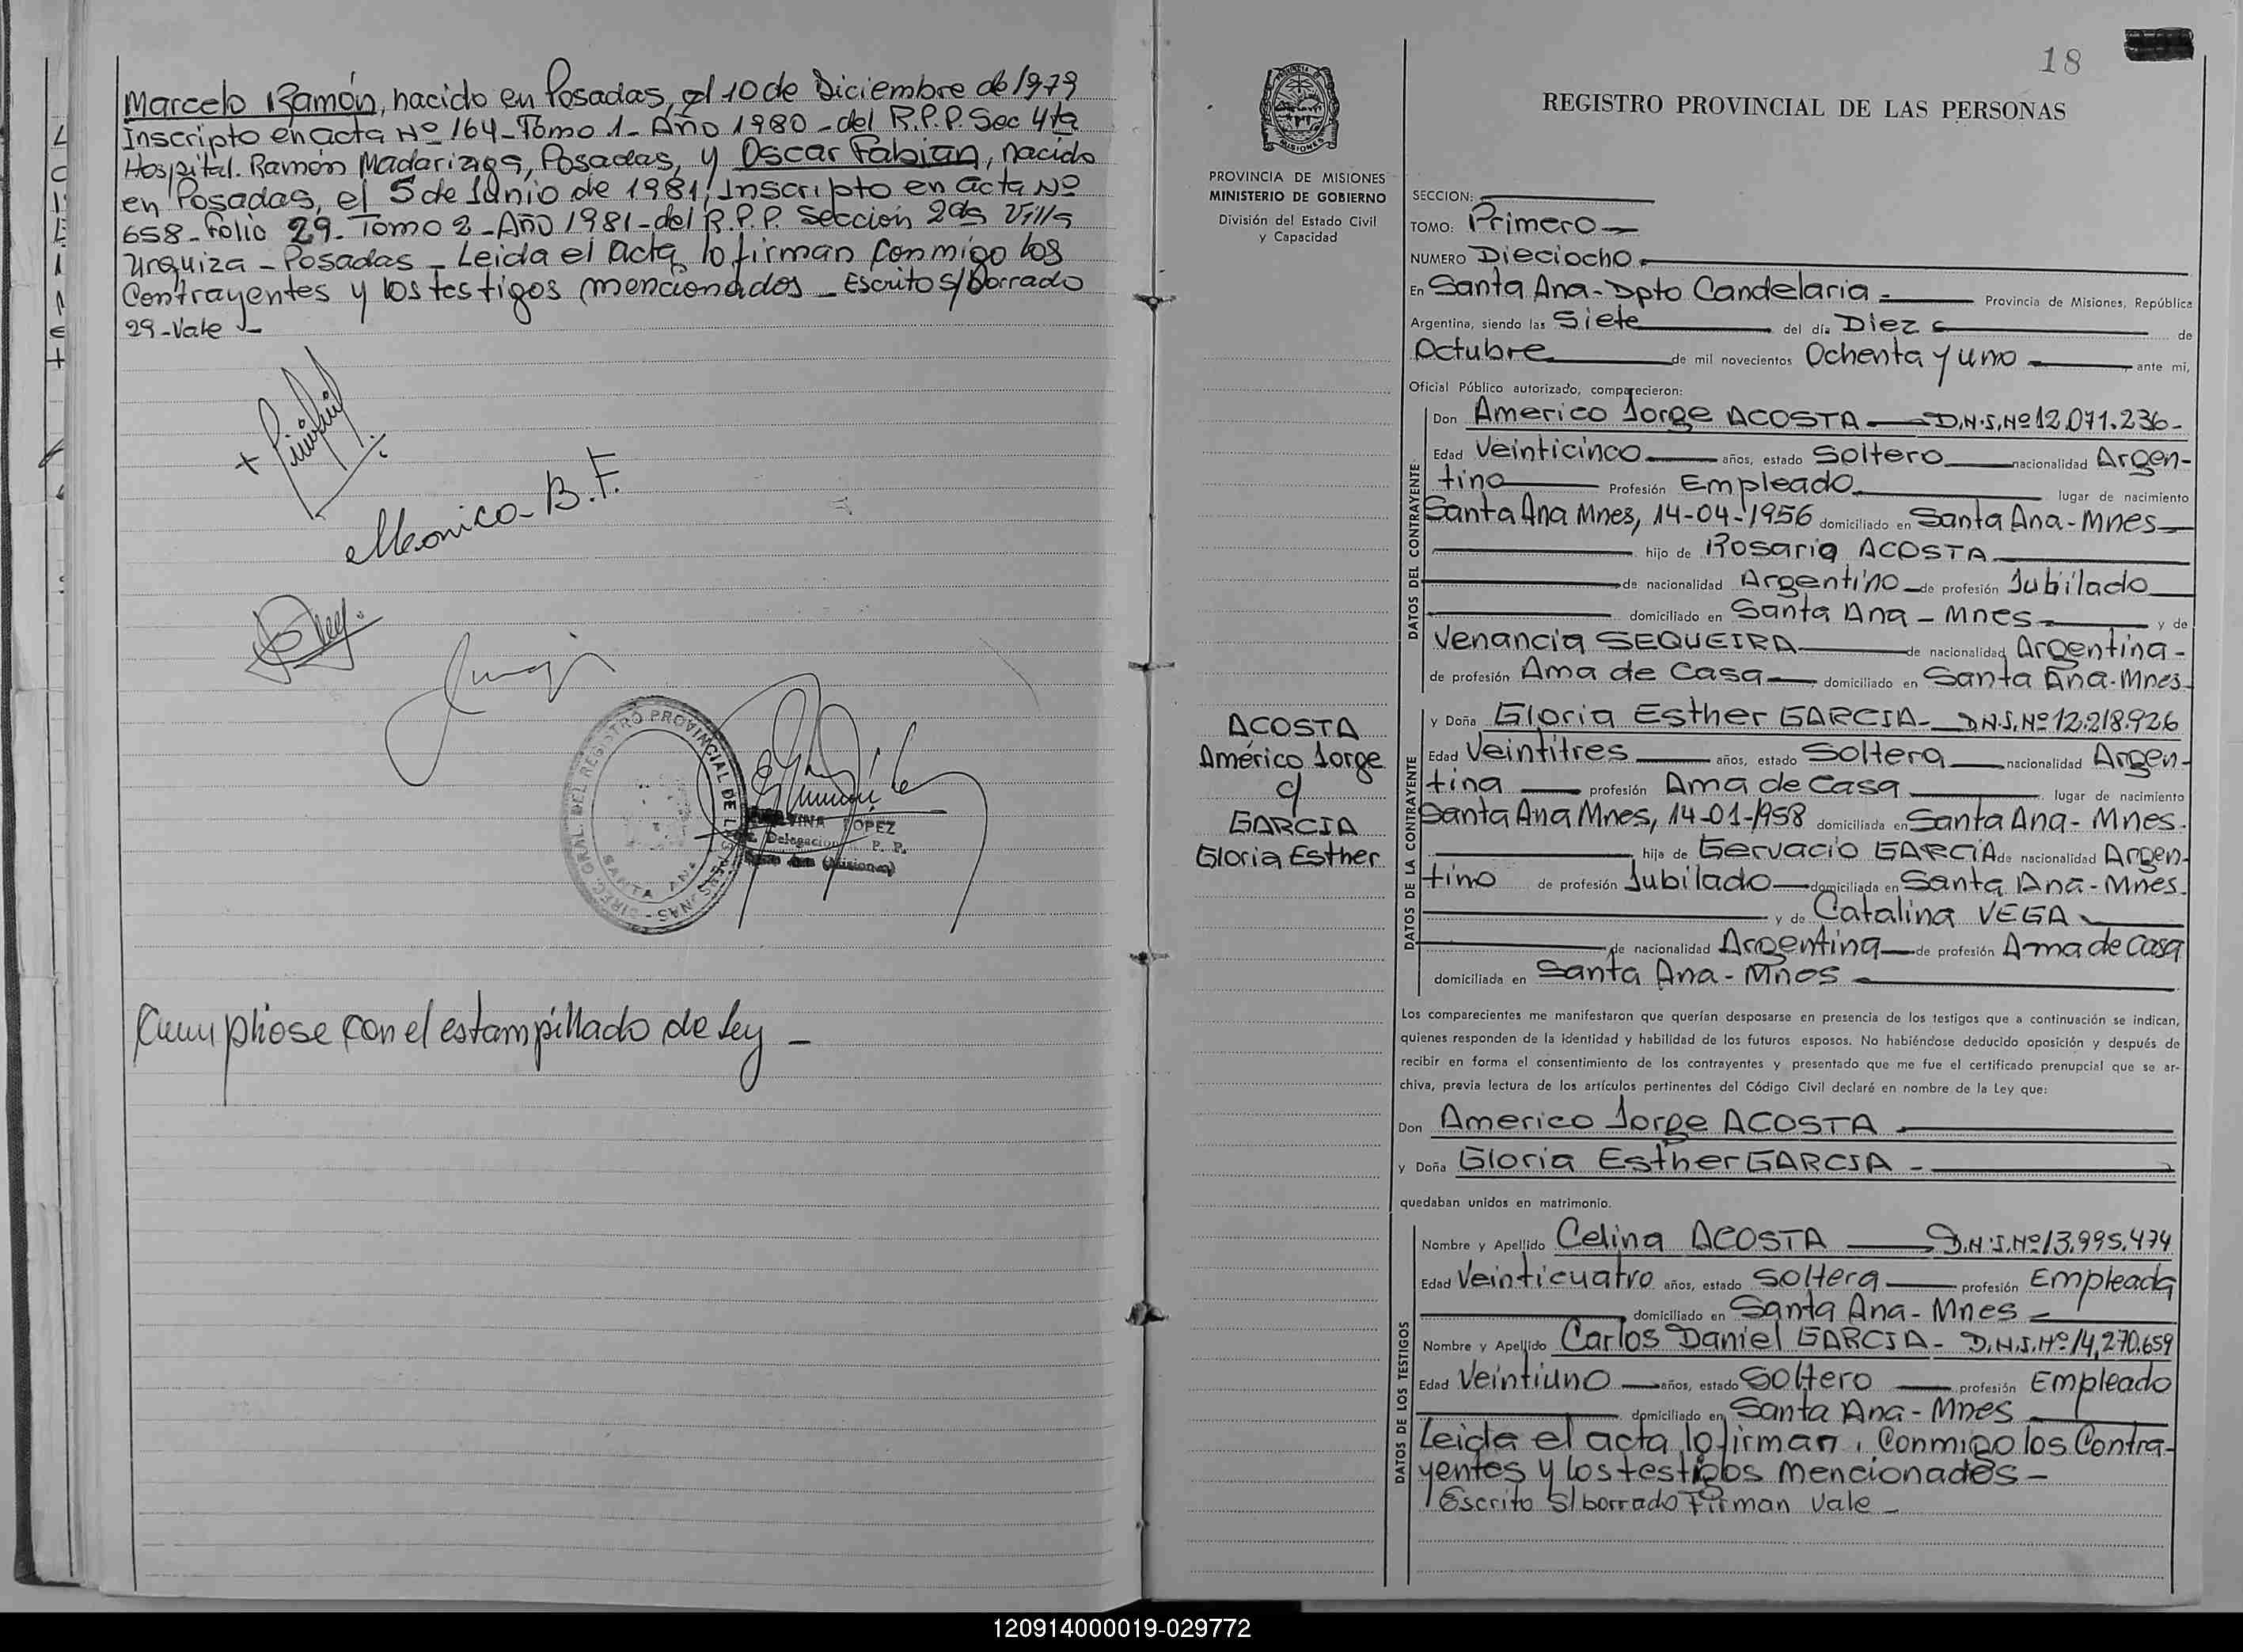 Marcelo Ramón, nacido en Posadas, el 10 de Diciembre de 1979
Inscripto en acta Nº 164 - Tomo 1 - Año 1980 - del R.P.P. Sec 4ta
Hospital. Ramón Madariaga, Posadas, y Oscar Fabian, nacido
en Posadas, el 5 de Junio de 1981, Inscripto en acta Nº
658 - folio 29 - Tomo 2 - Año 1981 - del R.P.P. Sección 2da Villa
Urquiza - Posadas - Leida el acta, lo firman conmigo los
Contrayentes y los testigos mencionados - Escrito s/borrado
29 - Vale -
Monica - B. F.
DIREC. GRAL. DEL REGISTRO PROVINCIAL DE LAS PERSONAS -
SANTA ANA
LOPEZ
Delegacion P. P.
(Misiones)
Cumpliose con el estampillado de Ley -
18
PROVINCIA DE MISIONES
MINISTERIO DE GOBIERNO
División del Estado Civil
y Capacidad
ACOSTA
Américo Jorge
c/
GARCIA
Gloria Esther
REGISTRO PROVINCIAL DE LAS PERSONAS
SECCION:
TOMO: Primero
NUMERO Dieciocho
En Santa Ana - Dpto Candelaria - Provincia de Misiones, República
Argentina, siendo las Siete del día Diez de
Octubre de mil novecientos Ochenta y uno ante mi,
Oficial Público autorizado, comparecieron:
DATOS DEL CONTRAYENTE
Don Americo Jorge ACOSTA - D.N.I. Nº 12.071.236 -
Edad Veinticinco años, estado Soltero nacionalidad Argen-
tino Profesión Empleado lugar de nacimiento
Santa Ana Mnes, 14-04-1956 domiciliado en Santa Ana - Mnes
hijo de Rosario ACOSTA
de nacionalidad Argentino de profesión Jubilado
domiciliado en Santa Ana - Mnes y de
Venancia SEQUEIRA de nacionalidad Argentina -
de profesión Ama de Casa domiciliado en Santa Ana - Mnes
DATOS DE LA CONTRAYENTE
y Doña Gloria Esther GARCIA - D.N.I. Nº 12.218.926
Edad Veintitres años, estado Soltera nacionalidad Argen-
tina profesión Ama de Casa lugar de nacimiento
Santa Ana Mnes, 14-01-1958 domiciliada en Santa Ana - Mnes.
hija de Gervacio GARCIA de nacionalidad Argen-
tino de profesión Jubilado domiciliada en Santa Ana - Mnes.
y de Catalina VEGA
de nacionalidad Argentina de profesión Ama de Casa
domiciliada en Santa Ana - Mnes
Los comparecientes me manifestaron que querían desposarse en presencia de los testigos que a continuación se indican,
quienes responden de la identidad y habilidad de los futuros esposos. No habiéndose deducido oposición y después de
recibir en forma el consentimiento de los contrayentes y presentado que me fue el certificado prenupcial que se ar-
chiva, previa lectura de los artículos pertinentes del Código Civil declaré en nombre de la Ley que:
Don Americo Jorge ACOSTA
y Doña Gloria Esther GARCIA -
quedaban unidos en matrimonio.
DATOS DE LOS TESTIGOS
Nombre y Apellido Celina ACOSTA D.N.I. Nº 13.995.474
Edad Veinticuatro años, estado Soltera profesión Empleada
domiciliado en Santa Ana - Mnes
Nombre y Apellido Carlos Daniel GARCIA - D.N.I. Nº 14,270.659
Edad Veintiuno años, estado Soltero profesión Empleado
domiciliado en Santa Ana - Mnes
Leida el acta, lo firman, Conmigo los Contra-
yentes y los testigos mencionados -
Escrito s/borrado Firman Vale -
120914000019-029772